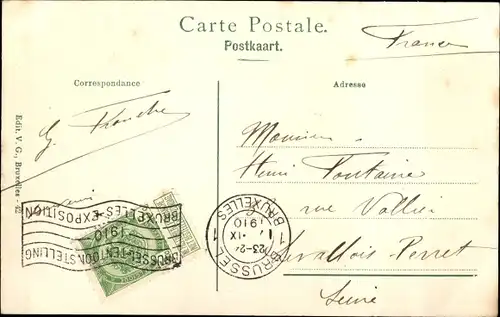 Carte Postale.
Postkaart.
France
Correspondance
Adresse
Edit. V. G., Bruxelles - 42
Monsieur
Henri Fontaine
rue Vallier
Levallois-Perret
Seine
BRUXELLES-EXPOSITION
1910
BRUSSEL-TENTOONSTELLING
BRUSSEL
1 1
23-24
IX
1910
BRUXELLES